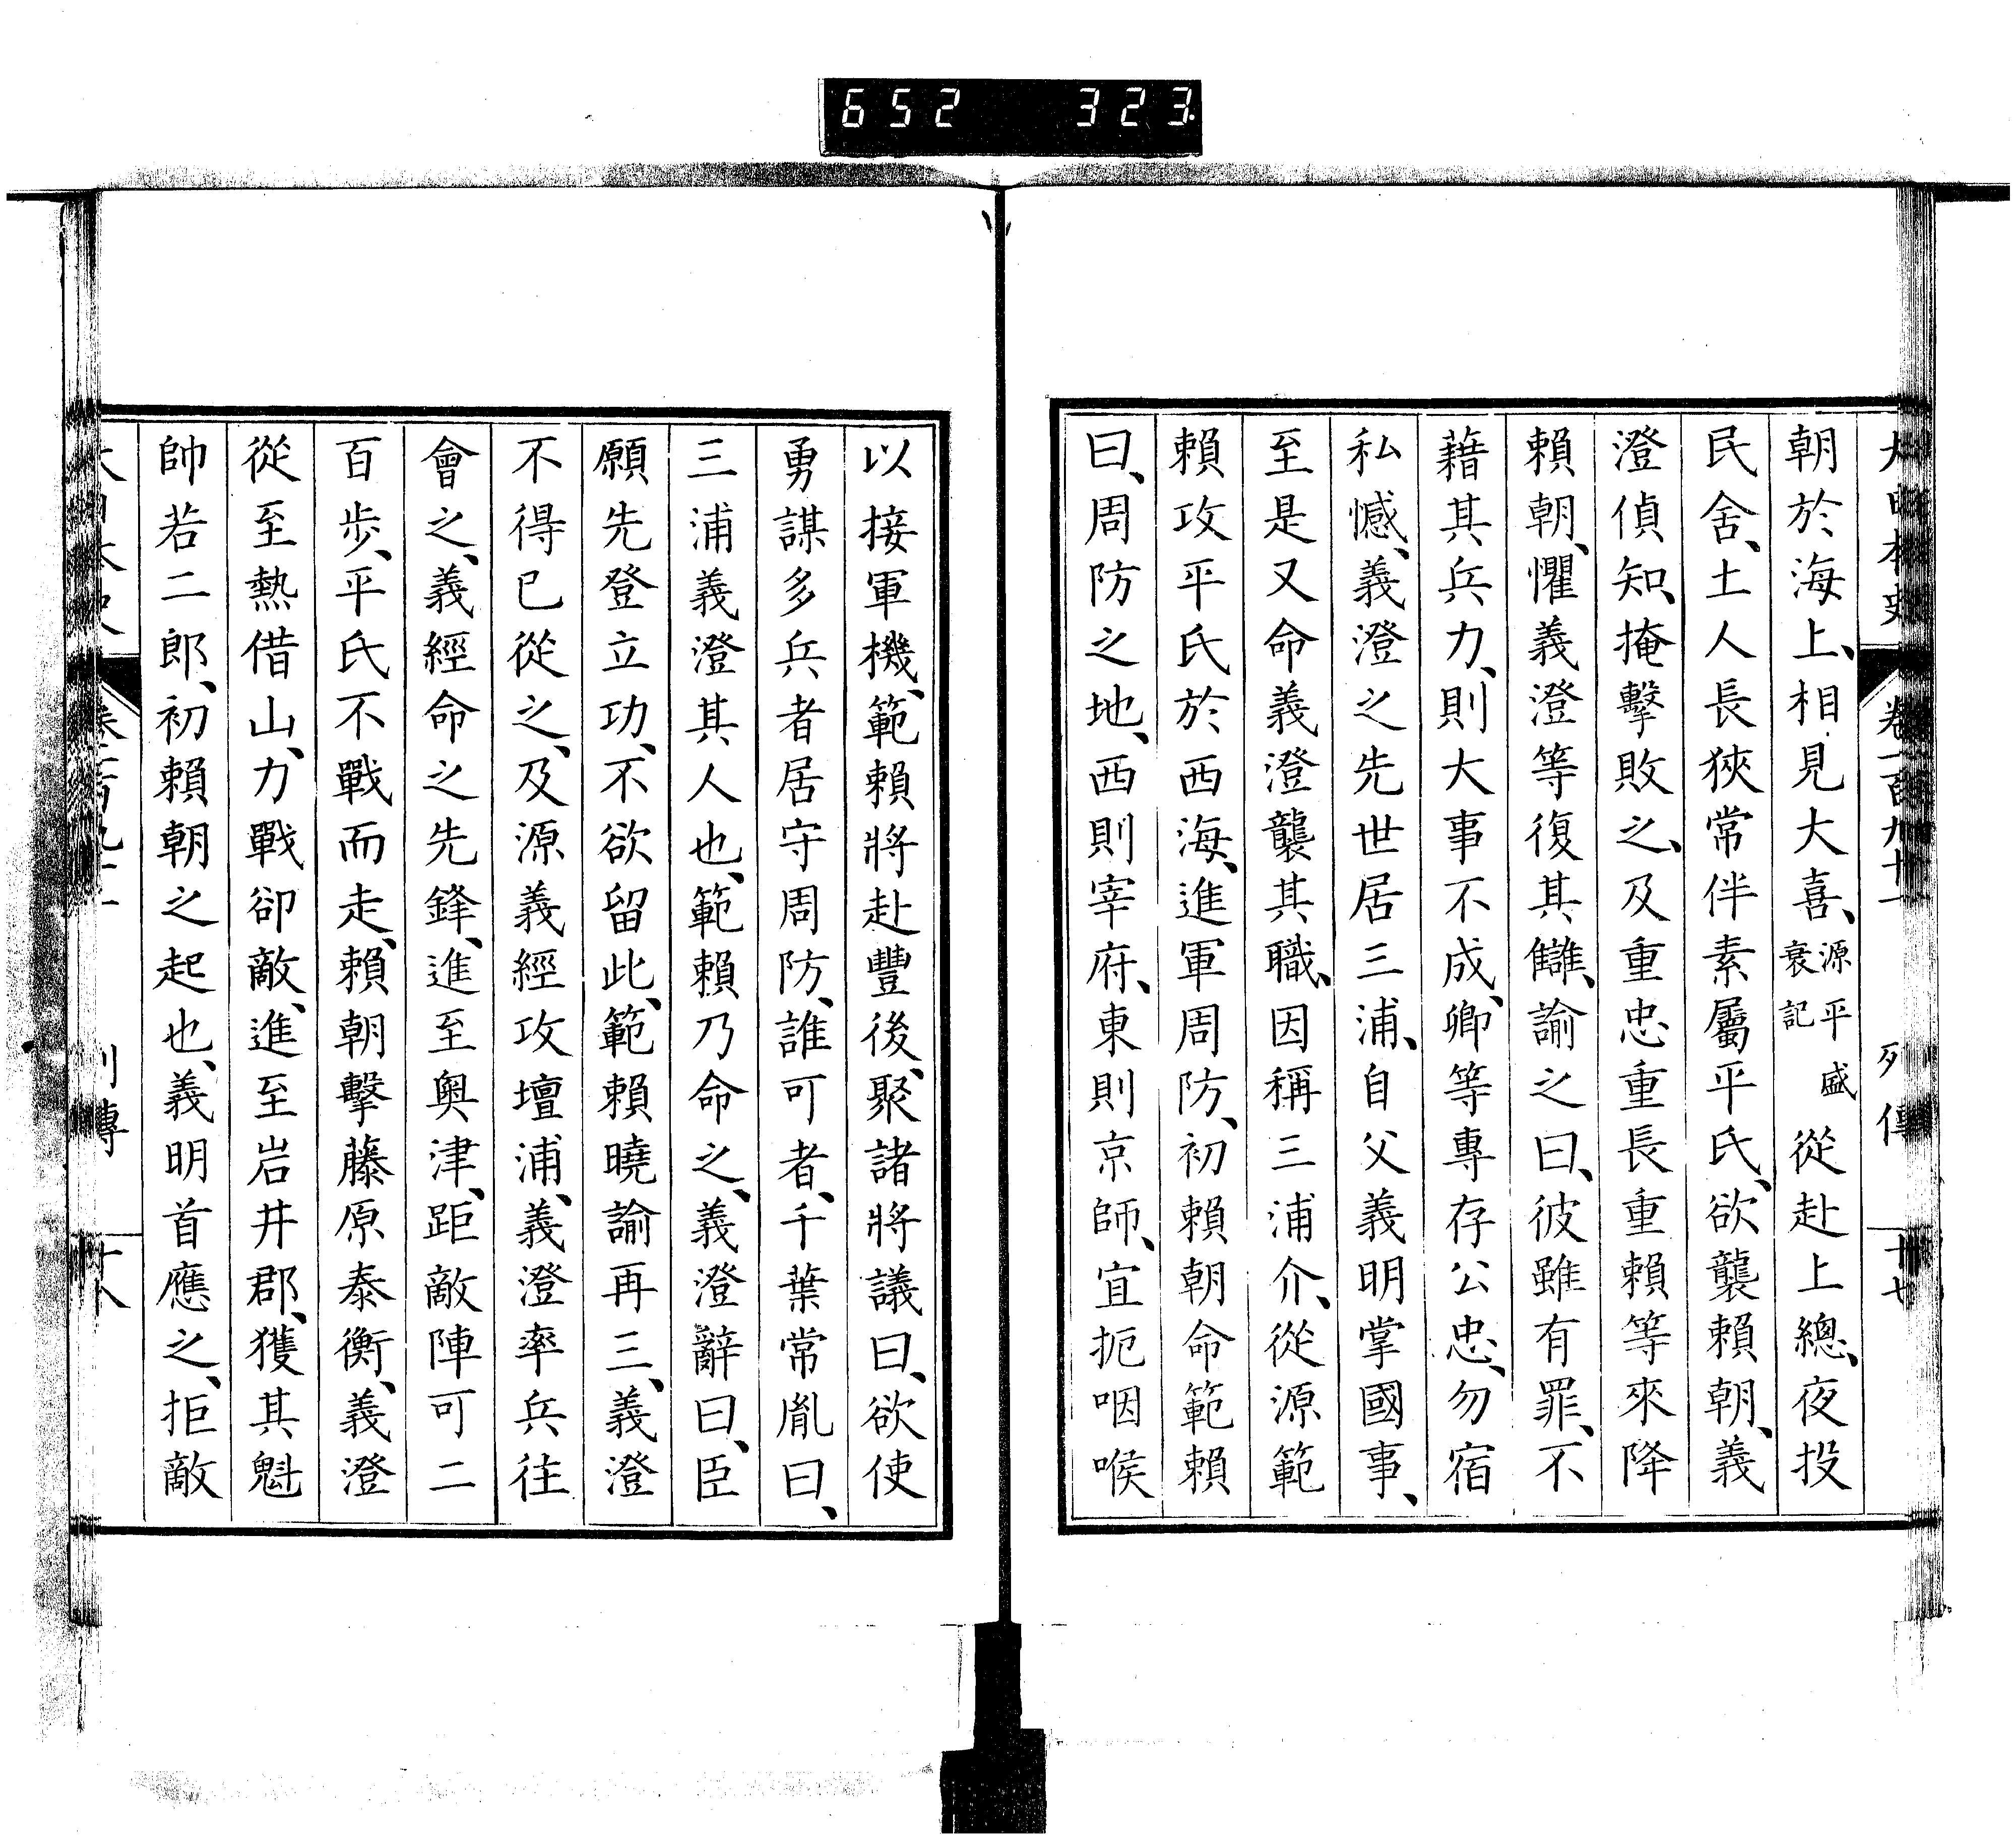 652 323
大日本史 卷一百九十一 列傳 十七
朝於海上、相見大喜、源平盛衰記從赴上總、夜投
民舍、土人長狹常伴素屬平氏、欲襲賴朝、義
澄偵知、掩擊敗之、及重忠重長重賴等來降
賴朝、懼義澄等復其讎、諭之曰、彼雖有罪、不
藉其兵力、則大事不成、卿等專存公忠、勿宿
私憾、義澄之先世居三浦、自父義明掌國事、
至是又命義澄襲其職、因稱三浦介、從源範
賴攻平氏於西海、進軍周防、初賴朝命範賴
曰、周防之地、西則宰府、東則京師、宜扼咽喉
以接軍機、範賴將赴豐後、聚諸將議曰、欲使
勇謀多兵者居守周防、誰可者、千葉常胤曰、
三浦義澄其人也、範賴乃命之、義澄辭曰、臣
願先登立功、不欲留此、範賴曉諭再三、義澄
不得已從之、及源義經攻壇浦、義澄率兵往
會之、義經命之先鋒、進至奧津、距敵陣可二
百步、平氏不戰而走、賴朝擊藤原泰衡、義澄
從至熱借山、力戰卻敵、進至岩井郡、獲其魁
帥若二郎、初賴朝之起也、義明首應之、拒敵
列傳